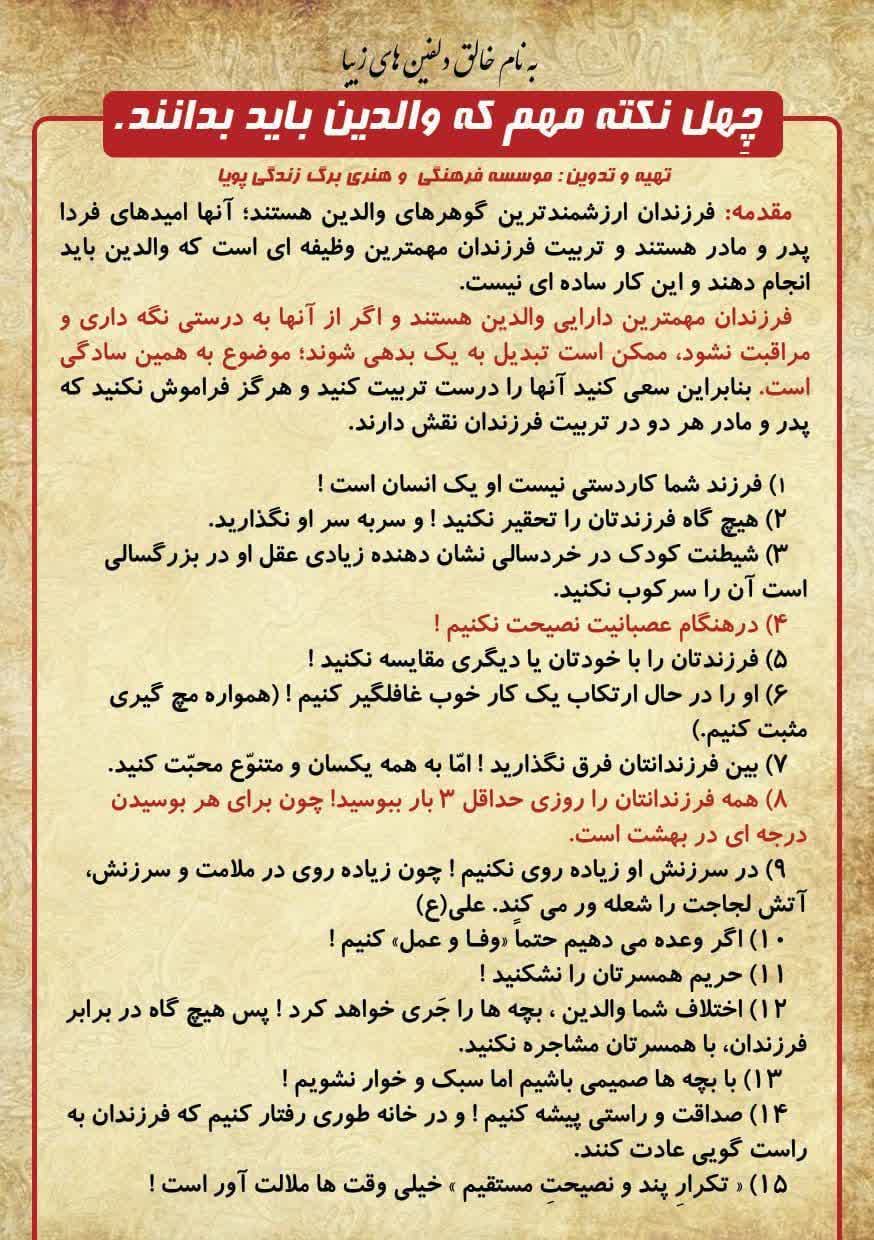 به نام خالق دلفین های زیبا
چِهل نکته مهم که والدین باید بدانند.
تهیه و تدوین: موسسه فرهنگی و هنری برگ زندگی پویا
مقدمه: فرزندان ارزشمندترین گوهرهای والدین هستند؛ آنها امیدهای فردا
پدر و مادر هستند و تربیت فرزندان مهمترین وظیفه ای است که والدین باید
انجام دهند و این کار ساده ای نیست.
فرزندان مهمترین دارایی والدین هستند و اگر از آنها به درستی نگه داری و
مراقبت نشود، ممکن است تبدیل به یک بدهی شوند؛ موضوع به همین سادگی
است. بنابراین سعی کنید آنها را درست تربیت کنید و هرگز فراموش نکنید که
پدر و مادر هر دو در تربیت فرزندان نقش دارند.
۱) فرزند شما کاردستی نیست او یک انسان است !
۲) هیچ گاه فرزندتان را تحقیر نکنید ! و سربه سر او نگذارید.
۳) شیطنت کودک در خردسالی نشان دهنده زیادی عقل او در بزرگسالی
است آن را سرکوب نکنید.
۴) درهنگام عصبانیت نصیحت نکنیم !
۵) فرزندتان را با خودتان یا دیگری مقایسه نکنید !
۶) او را در حال ارتکاب یک کار خوب غافلگیر کنیم ! (همواره مچ گیری
مثبت کنیم.)
۷) بین فرزندانتان فرق نگذارید ! امّا به همه یکسان و متنوّع محبّت کنید.
۸) همه فرزندانتان را روزی حداقل ۳ بار ببوسید! چون برای هر بوسیدن
درجه ای در بهشت است.
۹) در سرزنش او زیاده روی نکنیم ! چون زیاده روی در ملامت و سرزنش،
آتش لجاجت را شعله ور می کند. علی(ع)
۱۰) اگر وعده می دهیم حتماً «وفـا و عمل» کنیم !
۱۱) حریم همسرتان را نشکنید !
۱۲) اختلاف شما والدین ، بچه ها را جَری خواهد کرد ! پس هیچ گاه در برابر
فرزندان، با همسرتان مشاجره نکنید.
۱۳) با بچه ها صمیمی باشیم اما سبک و خوار نشویم !
۱۴) صداقت و راستی پیشه کنیم ! و در خانه طوری رفتار کنیم که فرزندان به
راست گویی عادت کنند.
۱۵) « تکرارِ پند و نصیحتِ مستقیم » خیلی وقت ها ملالت آور است !